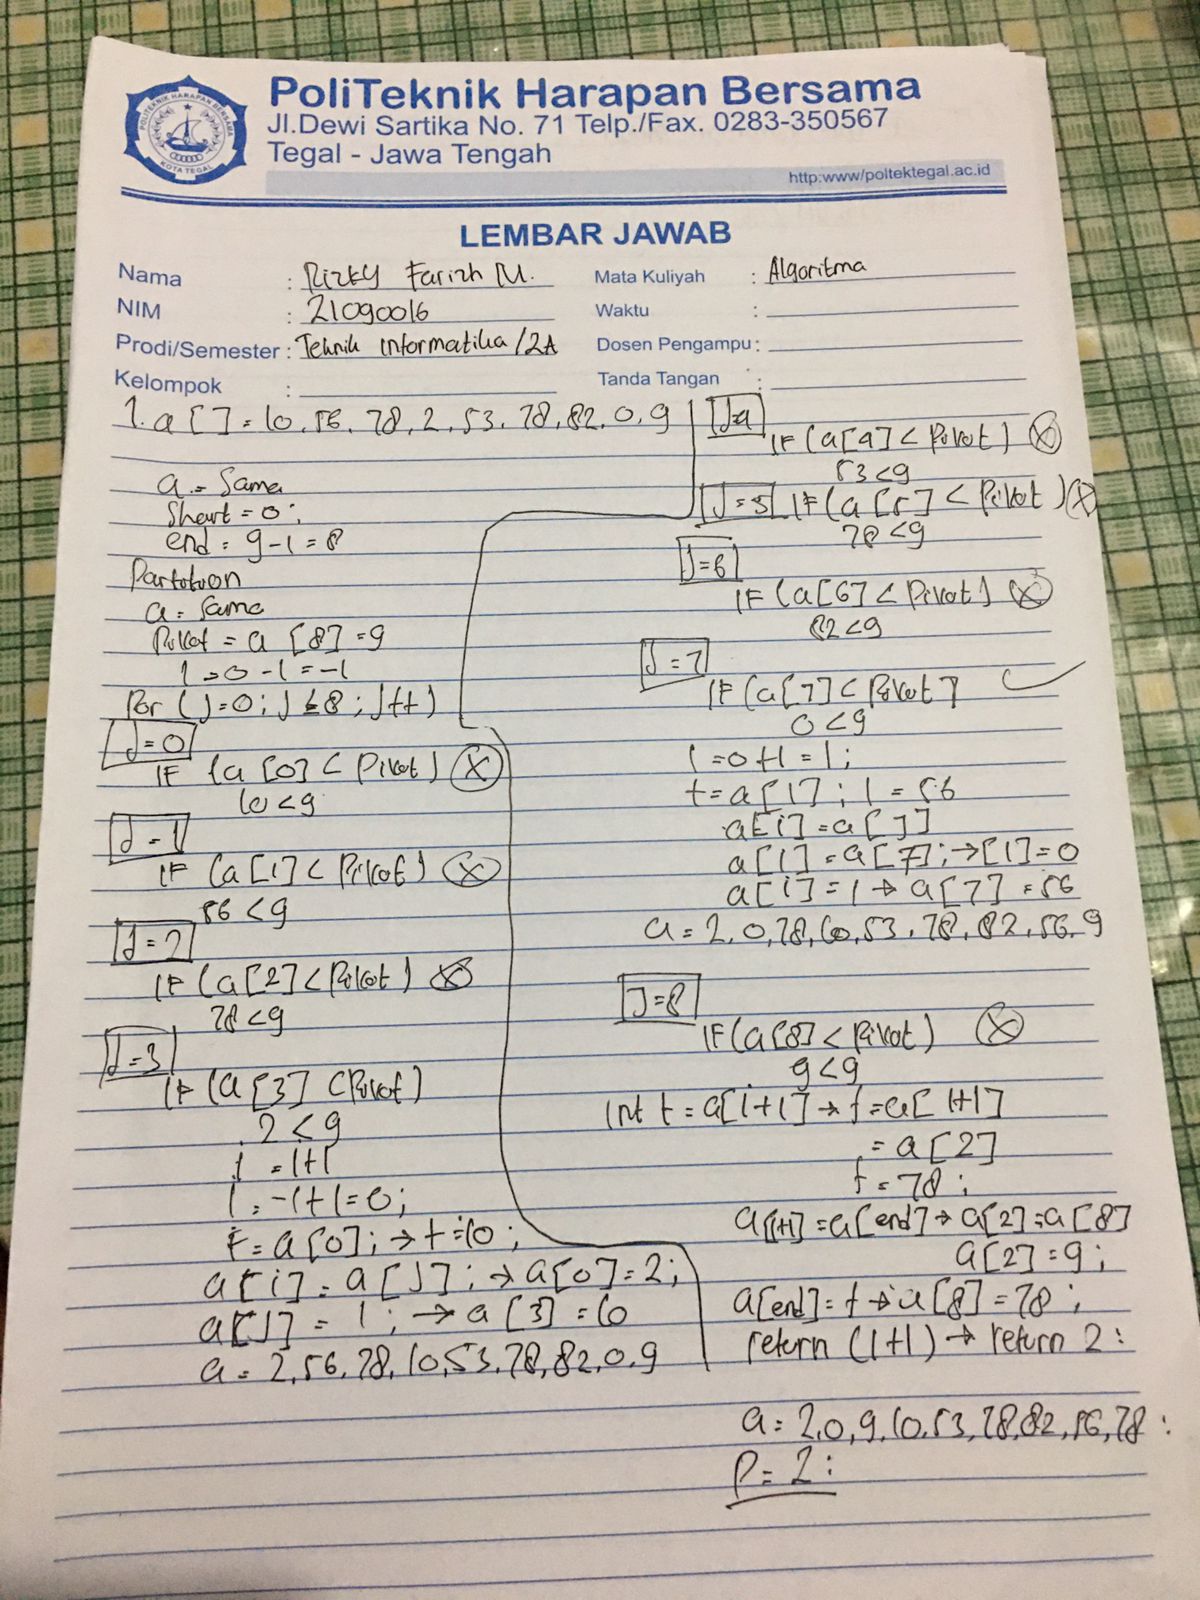 PoliTeknik Harapan Bersama
Jl.Dewi Sartika No. 71 Telp./Fax. 0283-350567
Tegal - Jawa Tengah
http:www/poltektegal.ac.id
POLITEKNIK HARAPAN BERSAMA
KOTA TEGAL
LEMBAR JAWAB
Nama : Rizky Farizh M.
NIM : 21090016
Prodi/Semester : Teknik Informatika / 2A
Kelompok :
Mata Kuliyah : Algoritma
Waktu :
Dosen Pengampu :
Tanda Tangan :
1. a [ ] = 10, 56, 78, 2, 53, 78, 82, 0, 9
a = Sama
Start = 0 ;
end = 9-1 = 8
Partition
a = Sama
Pivot = a [8] = 9
i = 0 - 1 = -1
For (J=0 ; J ≤ 8 ; J++)
J=0
IF (a [0] < Pivot) X
10 < 9
J=1
IF (a [1] < Pivot) X
56 < 9
J=2
IF (a [2] < Pivot) X
78 < 9
J=3
IF (a [3] < Pivot)
2 < 9
i = i+1
i = -1+1 = 0 ;
t = a [0] ; → t = 10 ;
a [i] = a [J] ; → a[0] = 2 ;
a [J] = 1 ; → a [3] = 10
a = 2, 56, 78, 10, 53, 78, 82, 0, 9
J=4
IF (a [4] < Pivot) X
53 < 9
J=5 IF (a [5] < Pivot) X
78 < 9
J=6
IF (a [6] < Pivot) X
82 < 9
J=7
IF (a [7] < Pivot] ✓
0 < 9
i = 0+1 = 1 ;
t = a [1] ; 1 = 56
a [i] = a [J]
a [1] = a [7] ; → [1] = 0
a [i] = 1 → a [7] = 56
a = 2, 0, 78, 10, 53, 78, 82, 56, 9
J=8
IF (a [8] < Pivot) X
9 < 9
Int t = a [i+1] → t = a [1+1]
= a [2]
t = 78 ;
a[i+1] = a [end] → a [2] = a [8]
a [2] = 9 ;
a [end] = t → a [8] = 78 ;
return (i+1) → return 2 ;
a = 2, 0, 9, 10, 53, 78, 82, 56, 78 ;
P = 2 ;